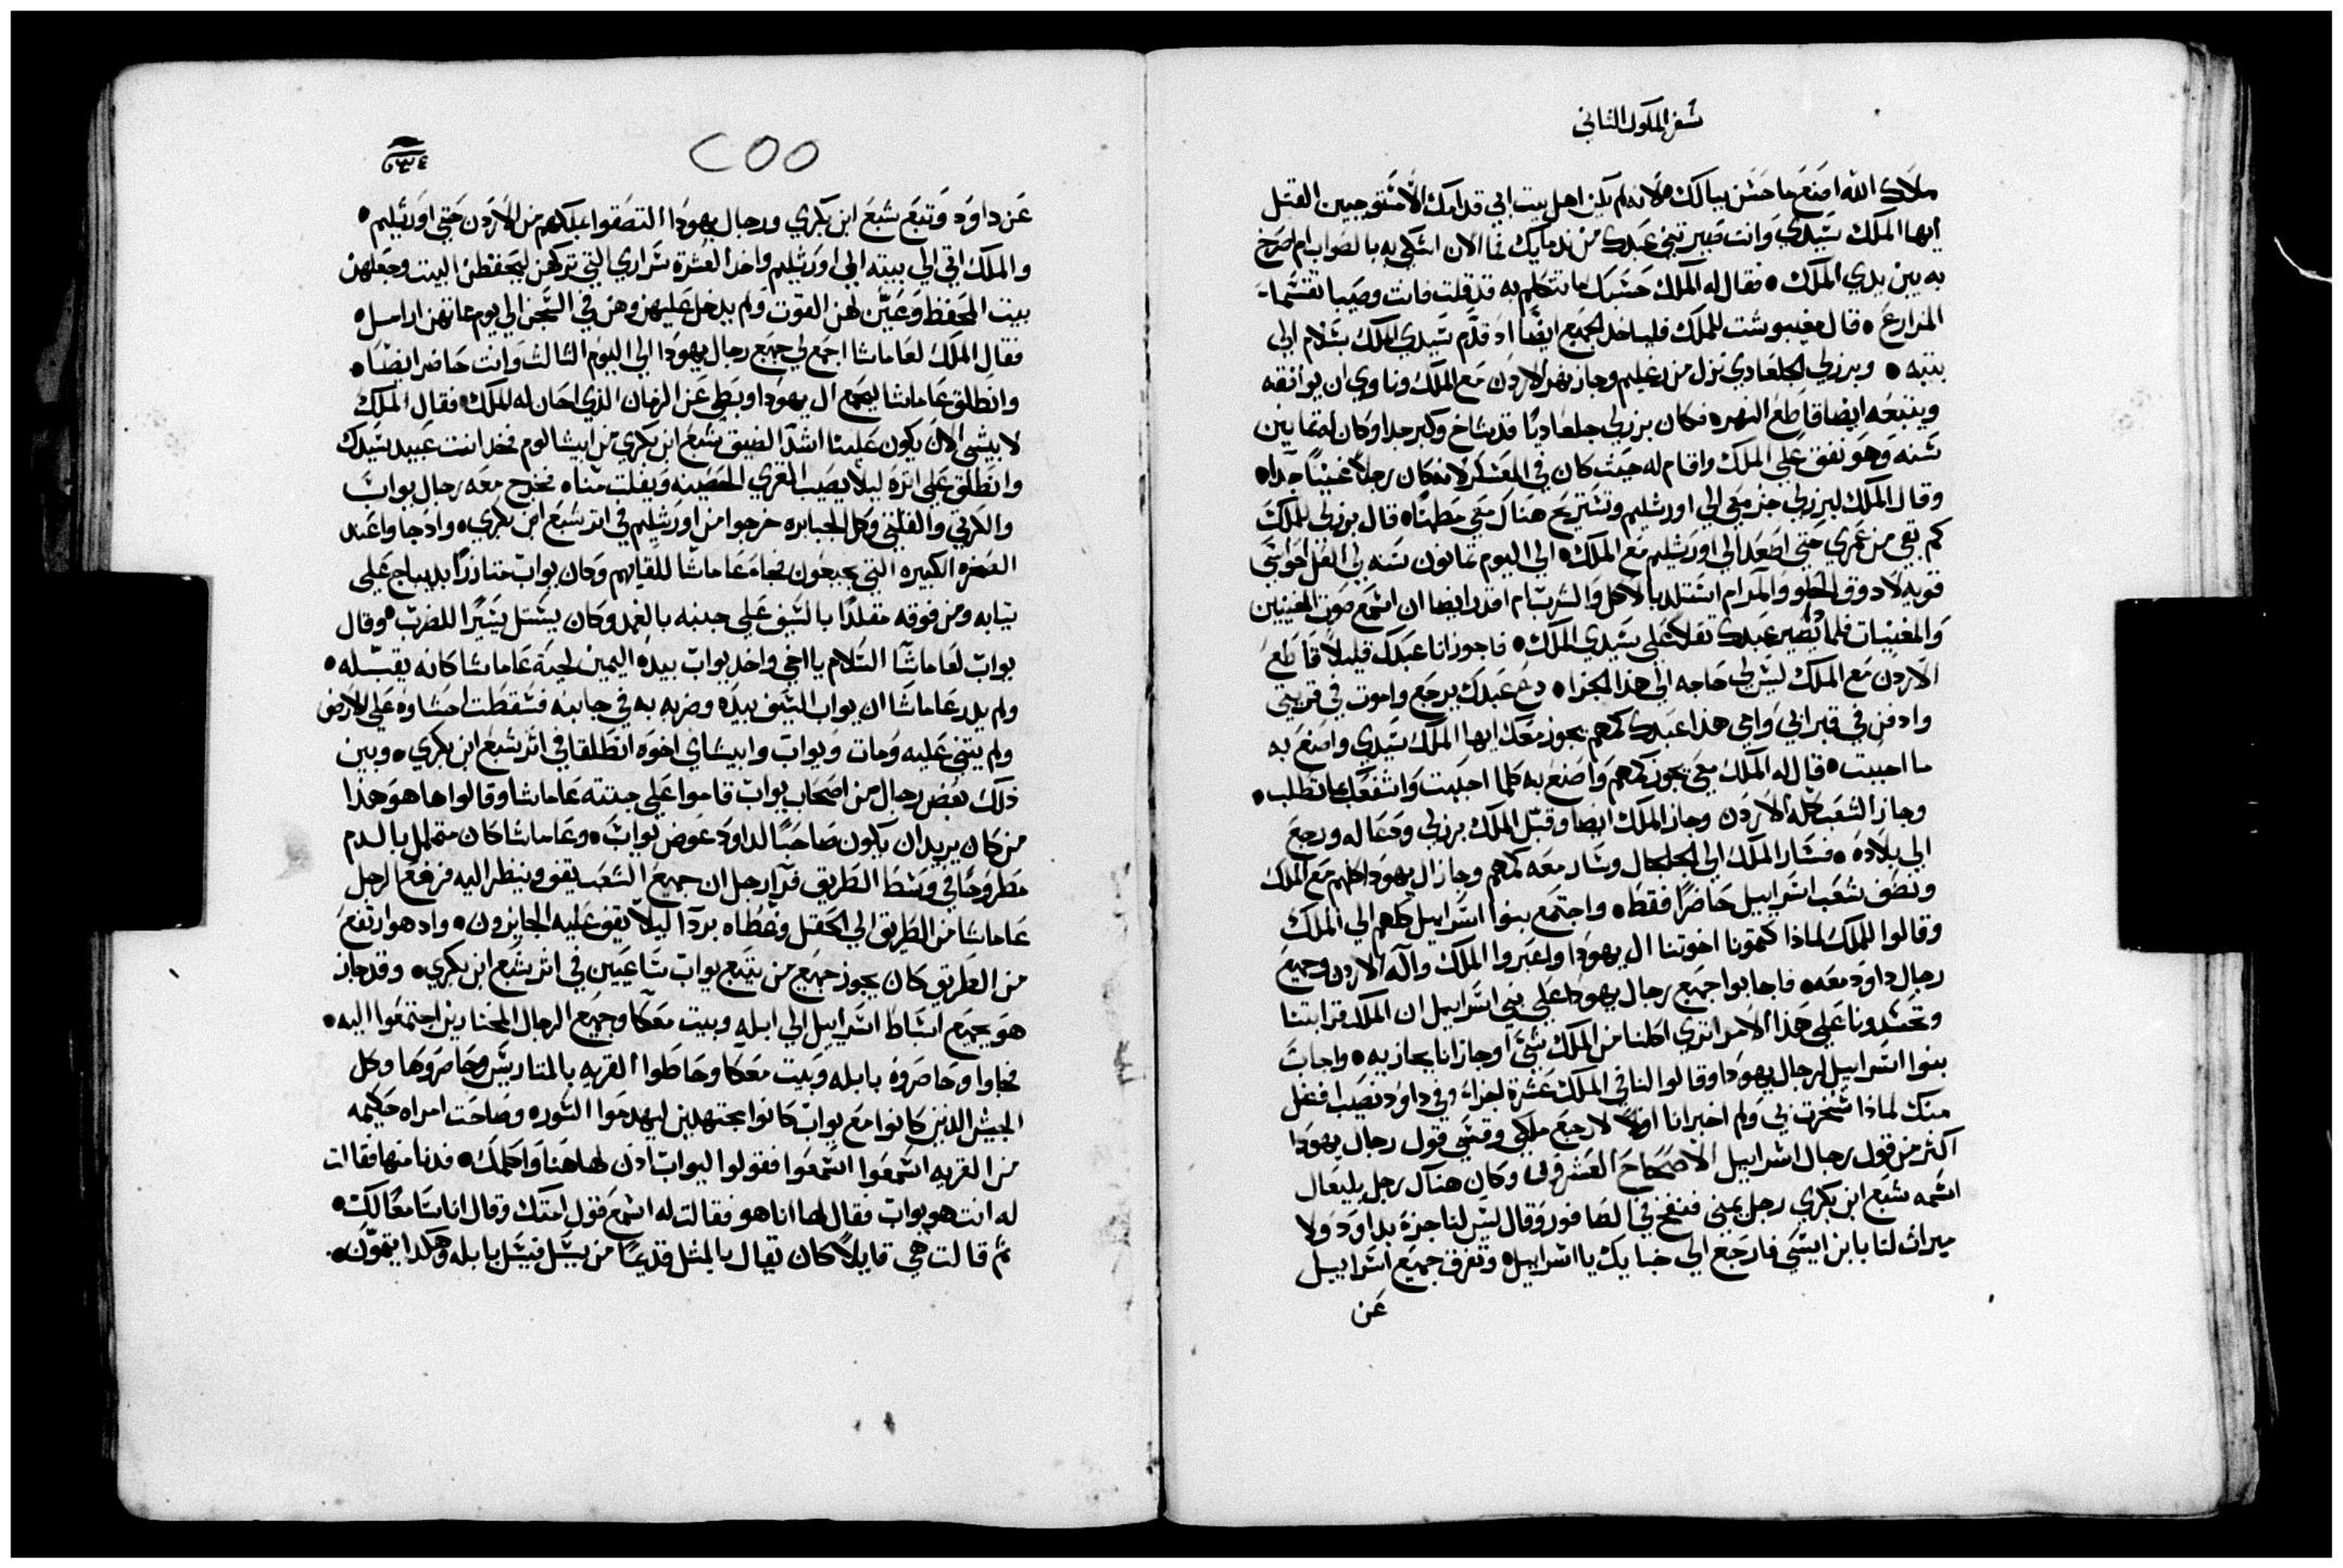 سفر الملوك الثاني
ملاك الله اصنع ما حسن ببالك لانه لم يكن اهل بيت ابي قدامك الا مستوجبين القتل
ايها الملك سيدي وانت صيرتني عبدك من ندمايك فما الان اشتكي به بالصواب ام اصرخ
به بين يدي الملك • فقال له الملك حسبك ما تتكلم به قد قلت فانت وصيبا تقتسما
المزارع • قال مفيبوشت للملك فلياخد الجميع ايضا اد قدم سيدي الملك بسلام الي
بيته • وبرزلي الجلعادي نزل من رغليم وجاز نهر الاردن مع الملك وناوي ان يوافقه
ويتبعه ايضا قاطع النهر • فكان برزلي جلعاديا قد شاخ وكبر جدا وكان له تمانين
سنه وهو نفق علي الملك واقام له حيث كان في المعسكر لانه كان رجلا غنيا جدا •
وقال الملك لبرزلي جز معي الي اورشليم وتستريح هناك معي مطمنا • قال برزلي للملك
كم بقي من عمري حتي اصعد الي اورشليم مع الملك • الي اليوم تمانون سنه لي افهل حواسي
قويه لادوق الحلو والمر ام استلد بالاكل والشرب ام اقدر ايضا ان اسمع صوت المغنيين
والمغنيات فلمادا يصير عبدك تقلا علي سيدي الملك • فاجوز انا عبدك قليلا قاطع
الاردن مع الملك ليس لي حاجه الي هذا الجزا • دع عبدك يرجع واموت في قريتي
وادفن في قبر ابي وامي هذا عبدك كمهم يجوز معك ايها الملك سيدي واصنع به
ما احببت • قال له الملك معي يجوز كمهم واصنع به كلما احببت واشفعك بما تطلب •
وجاز الشعب كله الاردن وجاز الملك ايضا وقبل الملك برزلي ودعا له ورجع
الي بلاده • فسار الملك الي الجلجال وسار معه كمهم وجاز ال يهودا كلهم مع الملك
ونصف شعب اسراييل حاضرا فقط • واجتمع بنوا اسراييل كلهم الي الملك
وقالوا للملك لماذا كتمونا اخوتنا ال يهودا واعبروا الملك واله الاردن وجميع
رجال داود معه • فاجابوا جميع رجال يهودا علي بني اسراييل ان الملك قرابتنا
وتحسدونا علي هذا الامر اتري اكلنا من الملك شي او جازانا بجازيه • واجاب
بنوا اسراييل لرجال يهودا وقالوا لنا في الملك عشرة اجزاء وفي داود نصيب افضل
منك لماذا سخرت بي ولم اخبر انا اولا لارجع ملكي وقسي قول رجال يهودا
اكثر من قول رجال اسراييل الاصحاح العشرون وكان هناك رجل بليعال
اسمه شبع ابن بكري رجل يمني فنفخ في الصافور وقال ليس لنا جزء بداود ولا
ميراث لنا بابن ايسي فارجع الي خبايك يا اسراييل • وتفرق جميع اسراييل
عن
٢٥٥
عن داود وتبع شبع ابن بكري ورجال يهودا التصقوا بملكهم من الاردن حتي اورشليم •
والملك اتي الي بيته الي اورشليم واخد العشرة سراري التي تركهن ليحفظن البيت وجعلهن
بيت المحفظ وعين لهن القوت ولم يدخل عليهن وهن في السجن الي يوم ماتهن ارامل •
فقال الملك لعاماسا اجمع لي جميع رجال يهودا الي اليوم التالت وانت حاضر ايضا •
وانطلق عاماسا ليجمع ال يهودا وبطي عن الزمان الذي احان له الملك فقال الملك
لابيشي الان يكون علينا اشد الضيق شبع ابن بكري من ابيشالوم فخد انت عبيد سيدك
وانطلق علي اثره ليلا يصب القري الحصينه ويفلت منا • فخرج معه رجال يواب
والكرتي والفلتي وكل الجبابره خرجوا من اورشليم في اثر شبع ابن بكري • واد جاوا عند
الصخره الكبيره التي بجبعون فجاء عاماسا للقايهم وكان يواب متازرا بديباج علي
تيابه ومن فوقه مقلدا بالسيف علي جنبه بالغمد وكان يستل يسيرا للضرب • وقال
يواب لعاماسا السلام يا اخي واخد يواب بيده اليمين لحية عاماسا كانه يقبله •
ولم يدر عاماسا ان يواب السيف بيده وضربه به في جانبه فسقطت احشاوه علي الارض
ولم يثني عليه ومات ويواب وابيساي اخوه انطلقا في اثر شبع ابن بكري • وبين
ذلك بعض رجال من اصحاب يواب قاموا علي جتته عاماسا وقالوا ها هو هذا
من كان يريد ان يكون صاحبا لداود عوض يواب • وعاماسا كان متململ بالدم
مطروحا في وسط الطريق فراء رجل ان جميع الشعب يقف وينظر اليه فرفع الرجل
عاماسا من الطريق الي الحقل وغطاه بردا ليلا يقف عليه الجايزون • واد هو ارتفع
من الطريق كان يجوز جميع من يتبع يواب ساعيين في اثر شبع ابن بكري • وقد جاز
هو بجميع اسباط اسراييل الي ابله وبيت معكا وجميع الرجال المختارين اجتمعوا اليه •
فجاوا وحاصروه بابله وبيت معكا وحاطوا القريه بالمتاريس وحاصروها وكل
الجيش الذين كانوا مع يواب كانوا مجتهدين ليهدموا السور • وصاحت امراه حكيمه
من القريه اسمعوا اسمعوا فقولوا ليواب ادن لهاهنا واكلمك • فدنا منها فقالت
له انت هو يواب فقال لها انا هو فقالت له اسمع قول امتك وقال انا سامع لك •
تم قالت هي قايلا كان يقال بالمثل قديما من يسل فيسل بابله وهكدا يتمون •